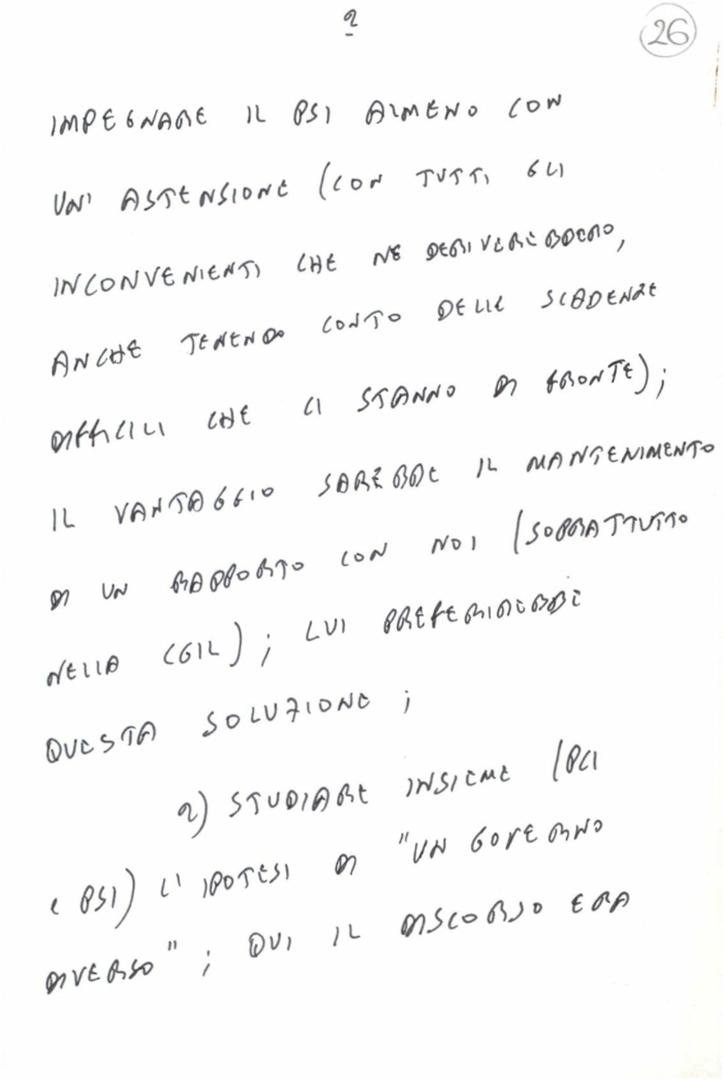 2
26
IMPEGNARE IL PSI ALMENO CON
UN' ASTENSIONE (CON TUTTI GLI
INCONVENIENTI CHE NE DERIVEREBBERO,
ANCHE TENENDO CONTO DELLE SCADENZE
DIFFICILI CHE CI STANNO DI FRONTE);
IL VANTAGGIO SAREBBE IL MANTENIMENTO
DI UN RAPPORTO CON NOI (SOPRATTUTTO
NELLA CGIL); LUI PREFERIREBBE
QUESTA SOLUZIONE;
2) STUDIARE INSIEME (PCI
E PSI) L'IPOTESI DI "UN GOVERNO
DIVERSO"; QUI IL DISCORSO ERA